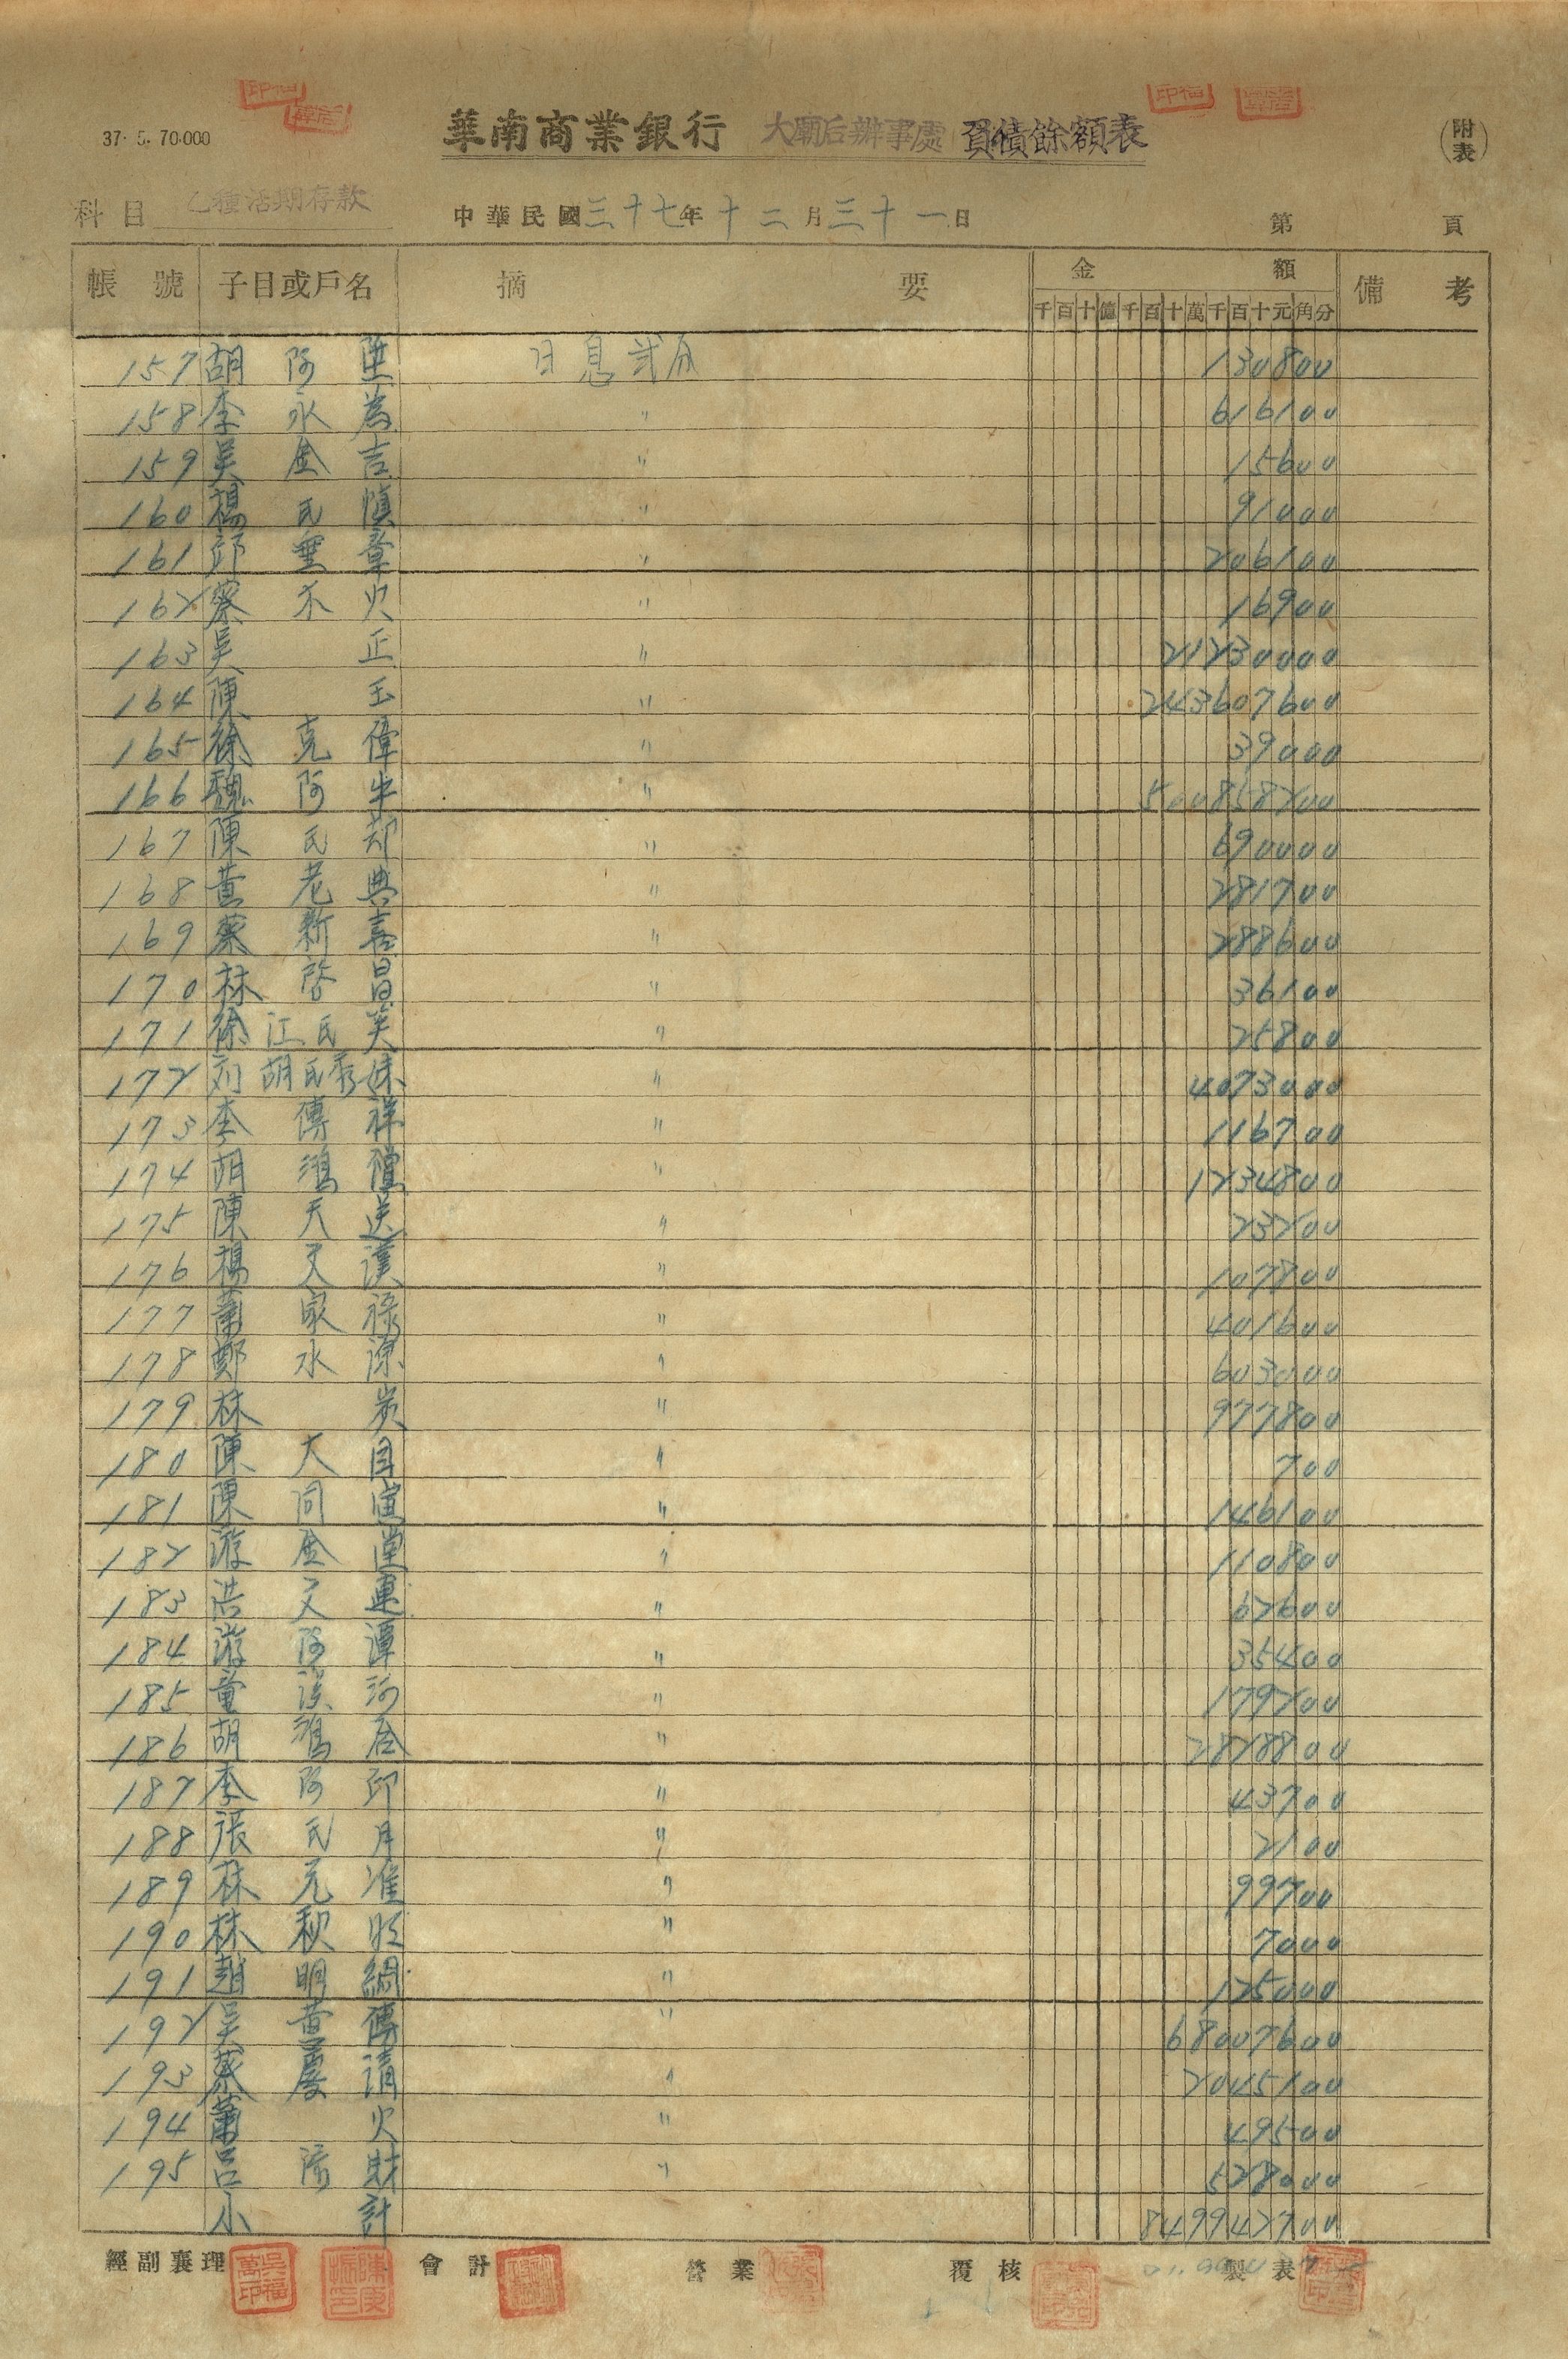 37. 5. 70.000
華南商業銀行 大廟后辦事處 負債餘額表 (附表)
科目 乙種活期存款 中華民國三十七年十二月三十一日 第 頁
帳號 子目或戶名 摘要 金額 備考
千百十億千百十萬千百十元角分
157 胡阿 日息弍分 130800
158 李永為 〃 616100
159 吳金吉 〃 15600
160 楊氏慎 〃 91000
161 邱垂章 〃 206100
162 蔡不火 〃 16900
163 吳正 〃 21230000
164 陳玉 〃 243607600
165 徐克偉 〃 39000
166 魏阿半 〃 500858200
167 陳氏却 〃 690000
168 黃老典 〃 281700
169 蔡新喜 〃 288600
170 林啓昌 〃 36100
171 徐江氏英 〃 25800
172 刘胡氏秀妹 〃 4073000
173 李傳祥 〃 116700
174 胡鴻 〃 1234800
175 陳天送 〃 23200
176 楊文漢 〃 107800
177 蕭家祿 〃 401600
178 鄭水源 〃 603000
179 林炭 〃 977800
180 陳大目 〃 700
181 陳同 〃 146100
182 游金蘭 〃 110800
183 洪文連 〃 62600
184 游阿潭 〃 35400
185 童漢河 〃 179200
186 胡鴻 〃 2828800
187 李阿卯 〃 43700
188 張氏月 〃 2100
189 林元准 〃 99700
190 林秋旺 〃 7000
191 趙明綢 〃 125000
192 吳黃傳 〃 68007600
193 蔡慶請 〃 2045100
194 蕭火 〃 49500
195 呂添財 〃 528000
小計 849942700
經副襄理 會計 營業 覆核 製表